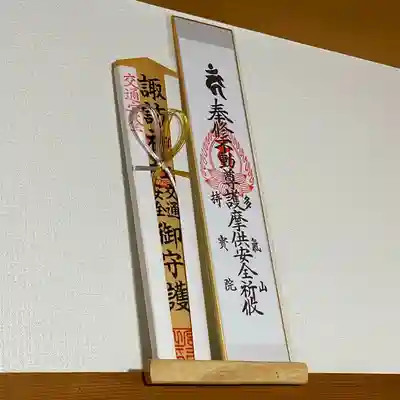 奉修不動尊護摩供安全祈攸
多氣山
持寳院
諏訪神
交通
安全
御守護
交通